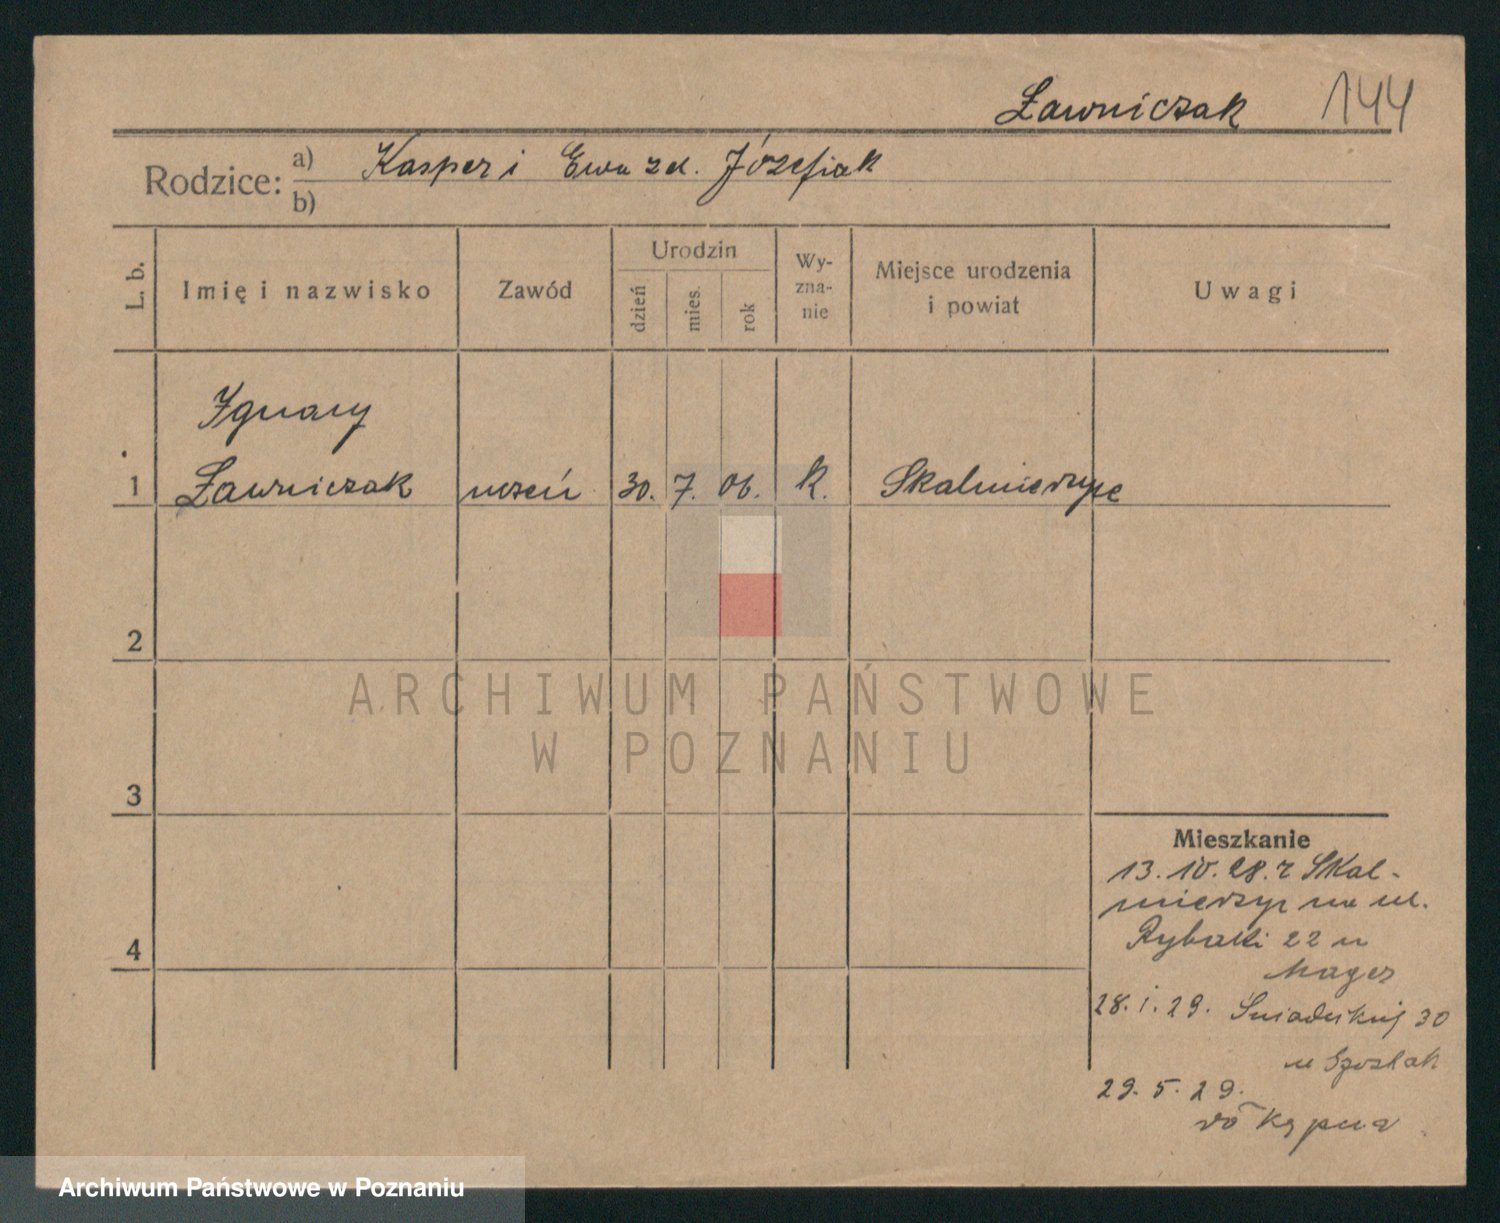 Ławniczak 144
Rodzice: a) Kasper i Ewa zd. Józefiak
b)
L. b. Imię i nazwisko Zawód Urodzin dzień mies. rok Wy-zna-nie Miejsce urodzenia i powiat Uwagi
Ignacy
1 Ławniczak uczeń 30. 7. 06. k. Skalmierzyce
2
3
4
Mieszkanie
13. 10. 28. z Skal-
mierzyc na ul.
Rybaki 22 u
Mager
28. 1. 29. Śniadeckij 30
u
29. 5. 29.
do Kępna
ARCHIWUM PAŃSTWOWE
W POZNANIU
Archiwum Państwowe w Poznaniu